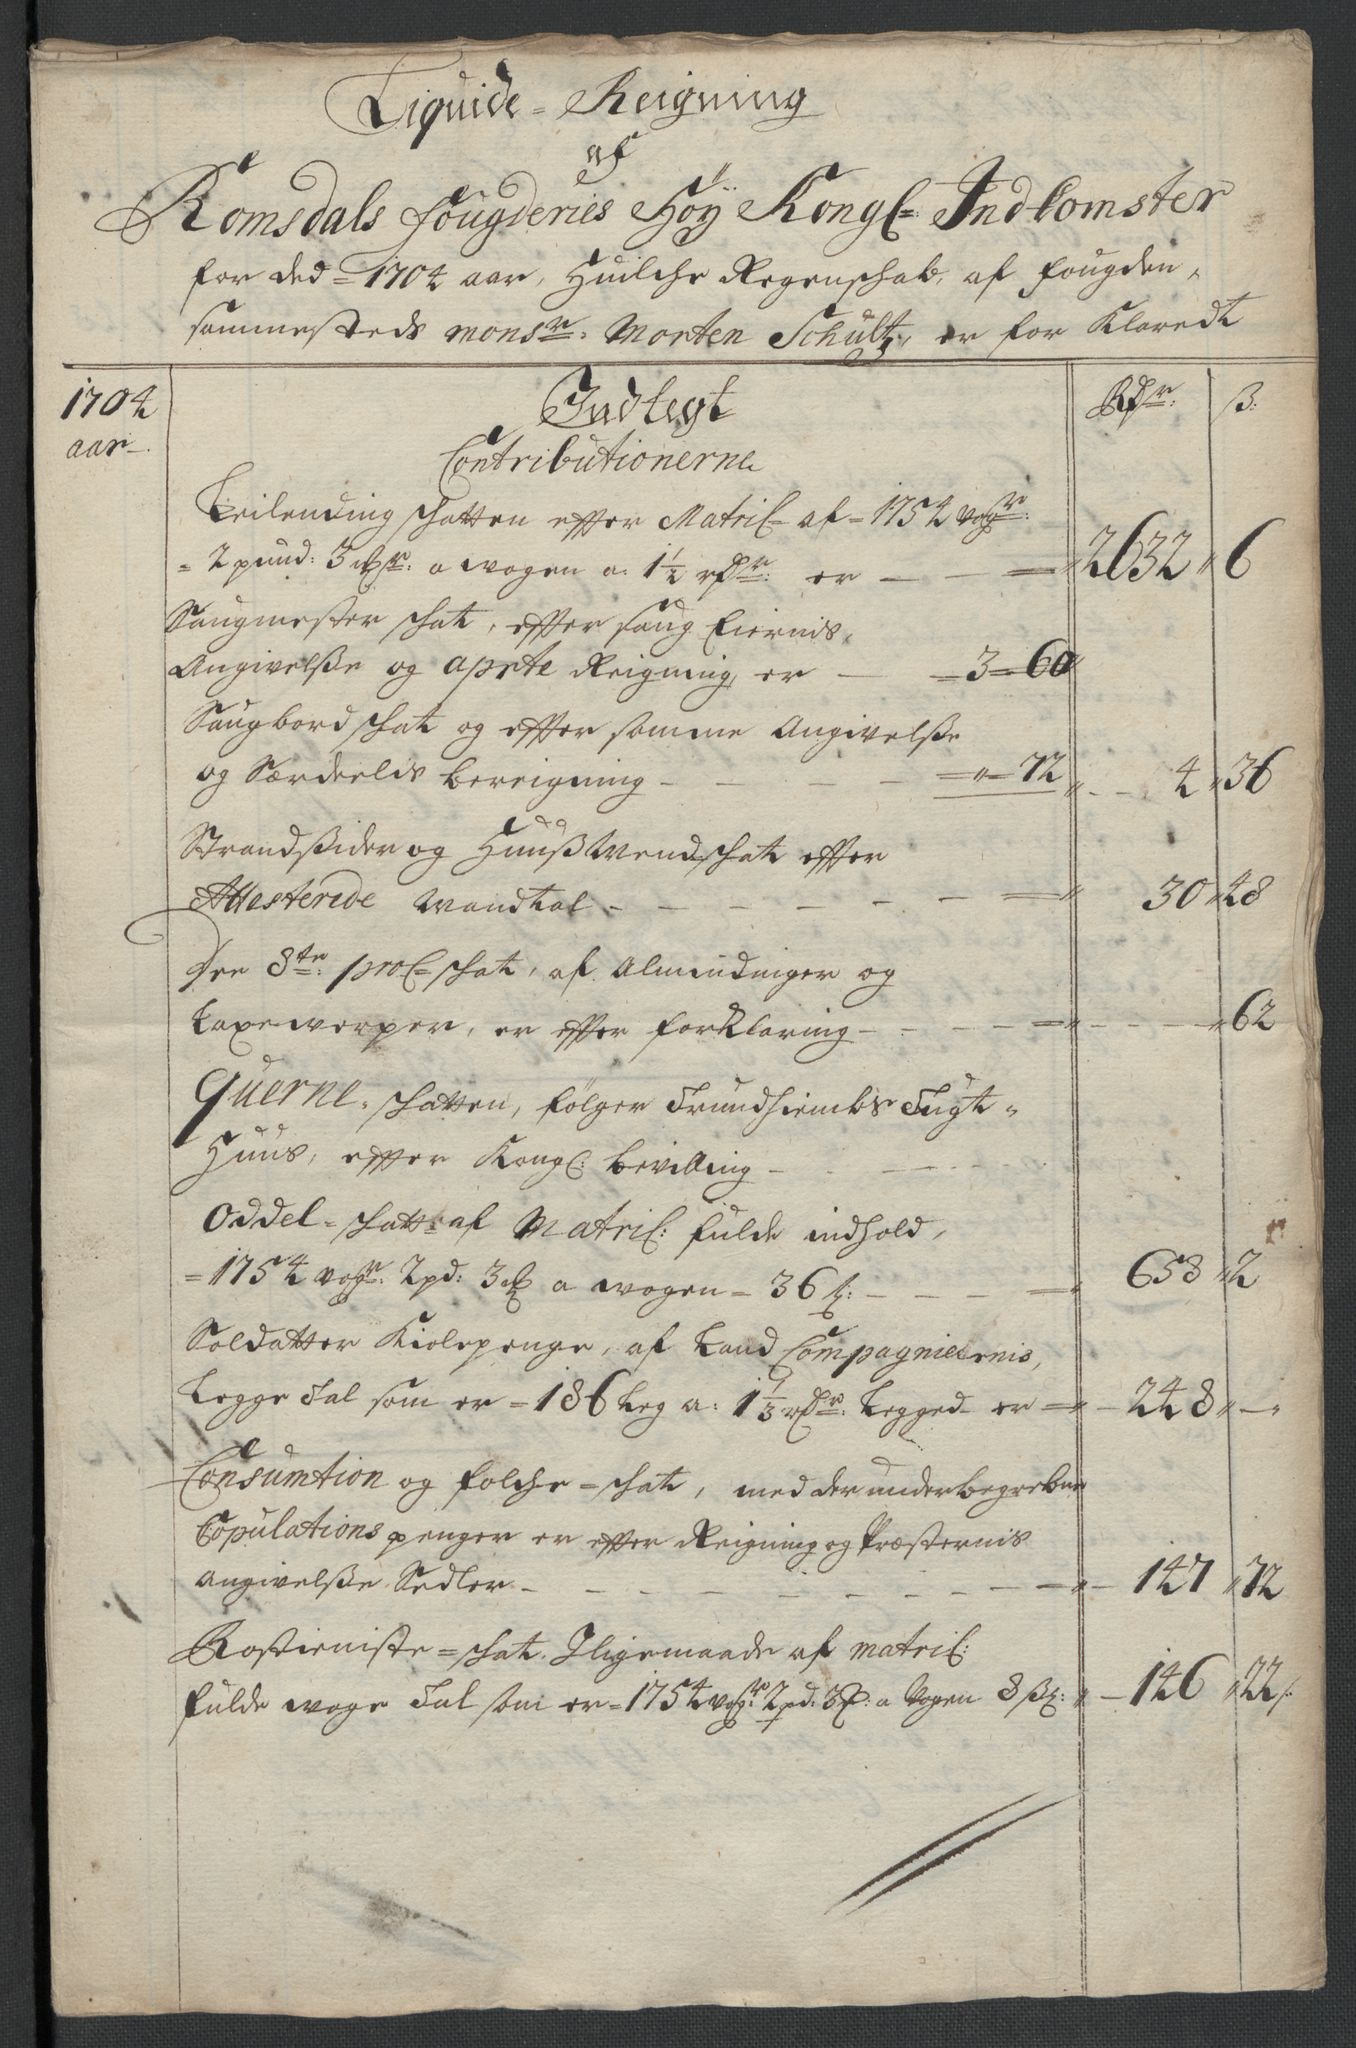 Liquide = Reigning
af
Romsdals fougderies Höÿ Kongl: Indkomster
for ded = 1704 aar, Huilche Regenschab, af fougden,
sammesteds monsr: Morten Schultz, er for Klaredt
1704
aar
Indtegt
Rdr: ß:
Contributionerne
Leilending schatten effter Matril af = 1754 vogr:
= 2 pund: 3 mkr: a wogen a: 1½ rdr: er — — = 2632 " 6
Saugmester schat, effter saug Eiernis,
Angivelße og aparte Reigning, er — = 3 = 60
Saugbord schat og effter samme Angivelße
og Særdeelis bereigning — — — = " = 72 " — 4 " 36
Strandsider og Huußmendschat effter
Attesterede Mandtal — — — — — = " 30 " 48
Den 8te: proC= schat, af Almindinger og
Laxeworper, er effter forklaring — — — = " — — " 62
Querne = schatten, følger Trundhiembs Tugt =
Huus, effter Kongl: bevilling — — —
Oddel = schatt af Matril: fulde indhold,
= 1754 vogr: 2 pd: 3 mk a wogen = 36 ß: — — — = " 658 " 2
Soldatter Kiolepenge, af Land Compagniernis,
Legge Tal som er = 186 Leg a: 1⅓ rdr: Legged er = " — 248 " — "
Consumtion og folche = schat, med der under begrebne
Copulations penger er effter Reigning og Præsternis
angivelße Sedler — — — — — — — " — 147 " 72
Rostieniste = schat. Jligemaade af matril:
fulde woge Tal som er = 1754 vogr: 2 pd: 3 mk: a Vogen 8 ß: " — 146 " 22